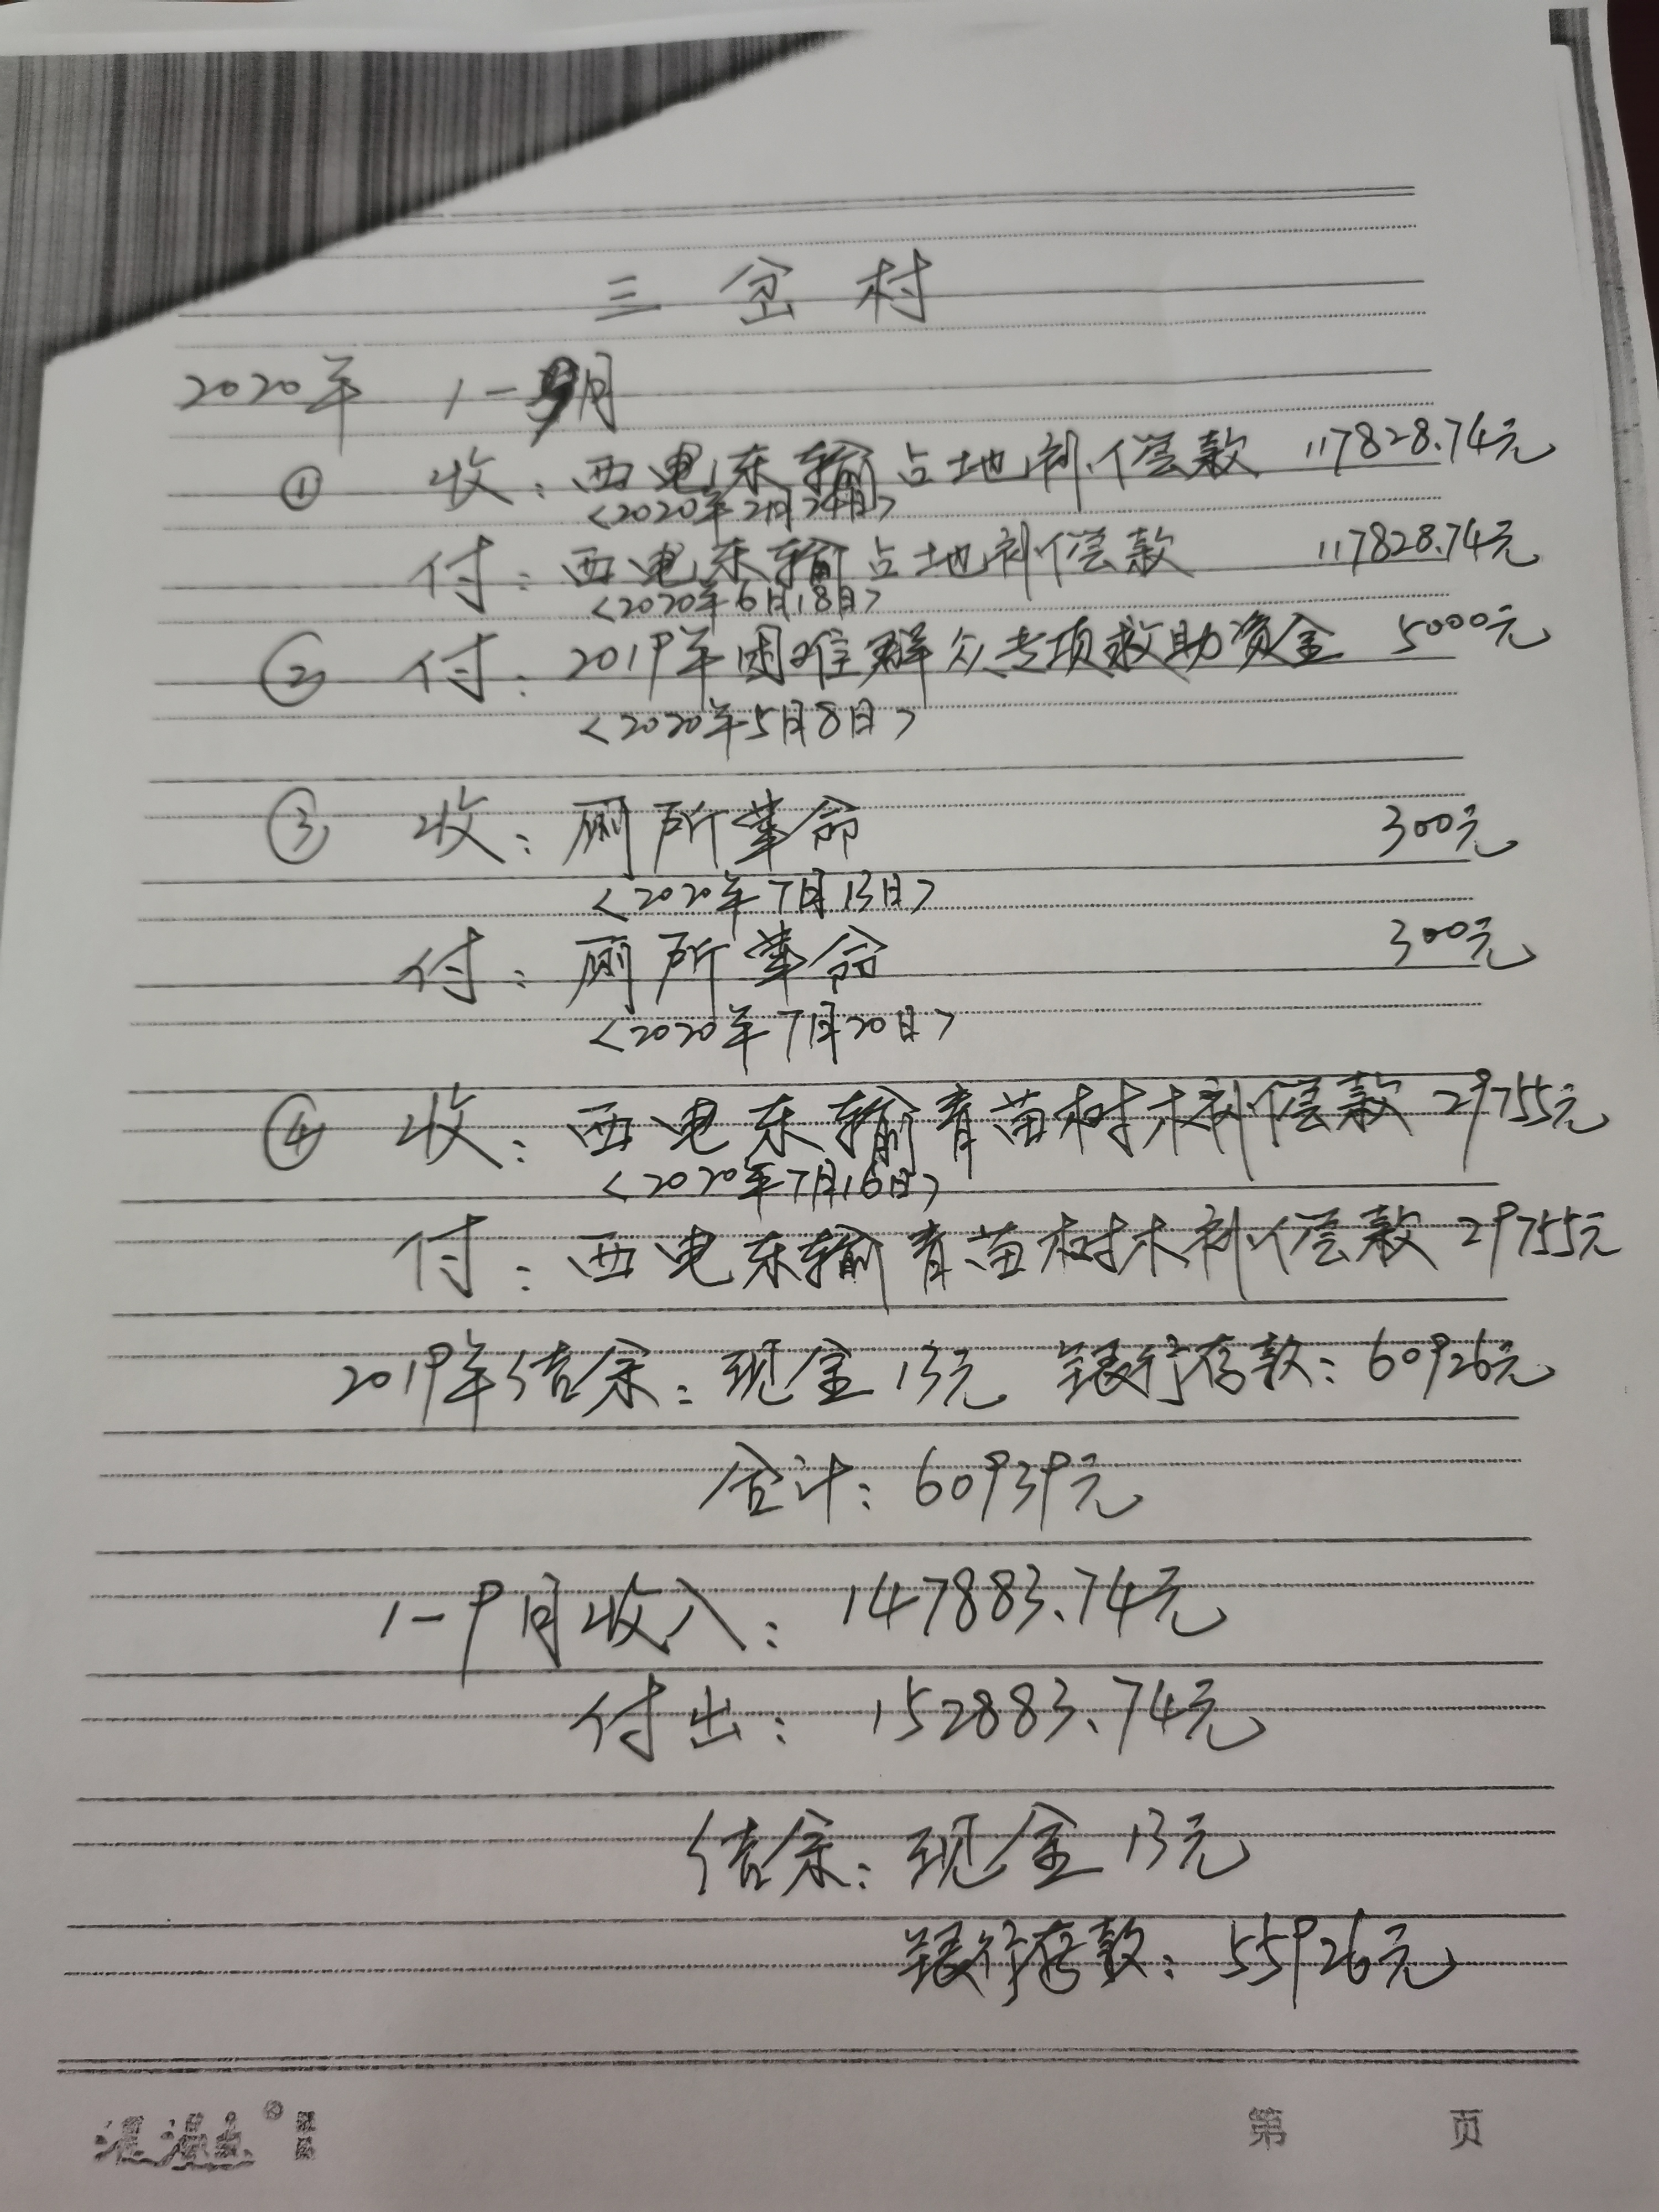 三岔村
2020年 1-9月
① 收：西电东输占地补偿款 117828.74元
<2020年2月24日>
付：西电东输占地补偿款 117828.74元
<2020年6月18日>
② 付：2019年困难群众专项救助资金 5000元
<2020年5月8日>
③ 收：厕所革命 300元
<2020年7月13日>
付：厕所革命 300元
<2020年7月20日>
④ 收：西电东输青苗树木补偿款 29755元
<2020年7月16日>
付：西电东输青苗树木补偿款 29755元
2019年结余：现金13元 银行存款：60926元
合计：60939元
1-9月收入：147883.74元
付出：152883.74元
结余：现金13元
银行存款：55926元
第 页